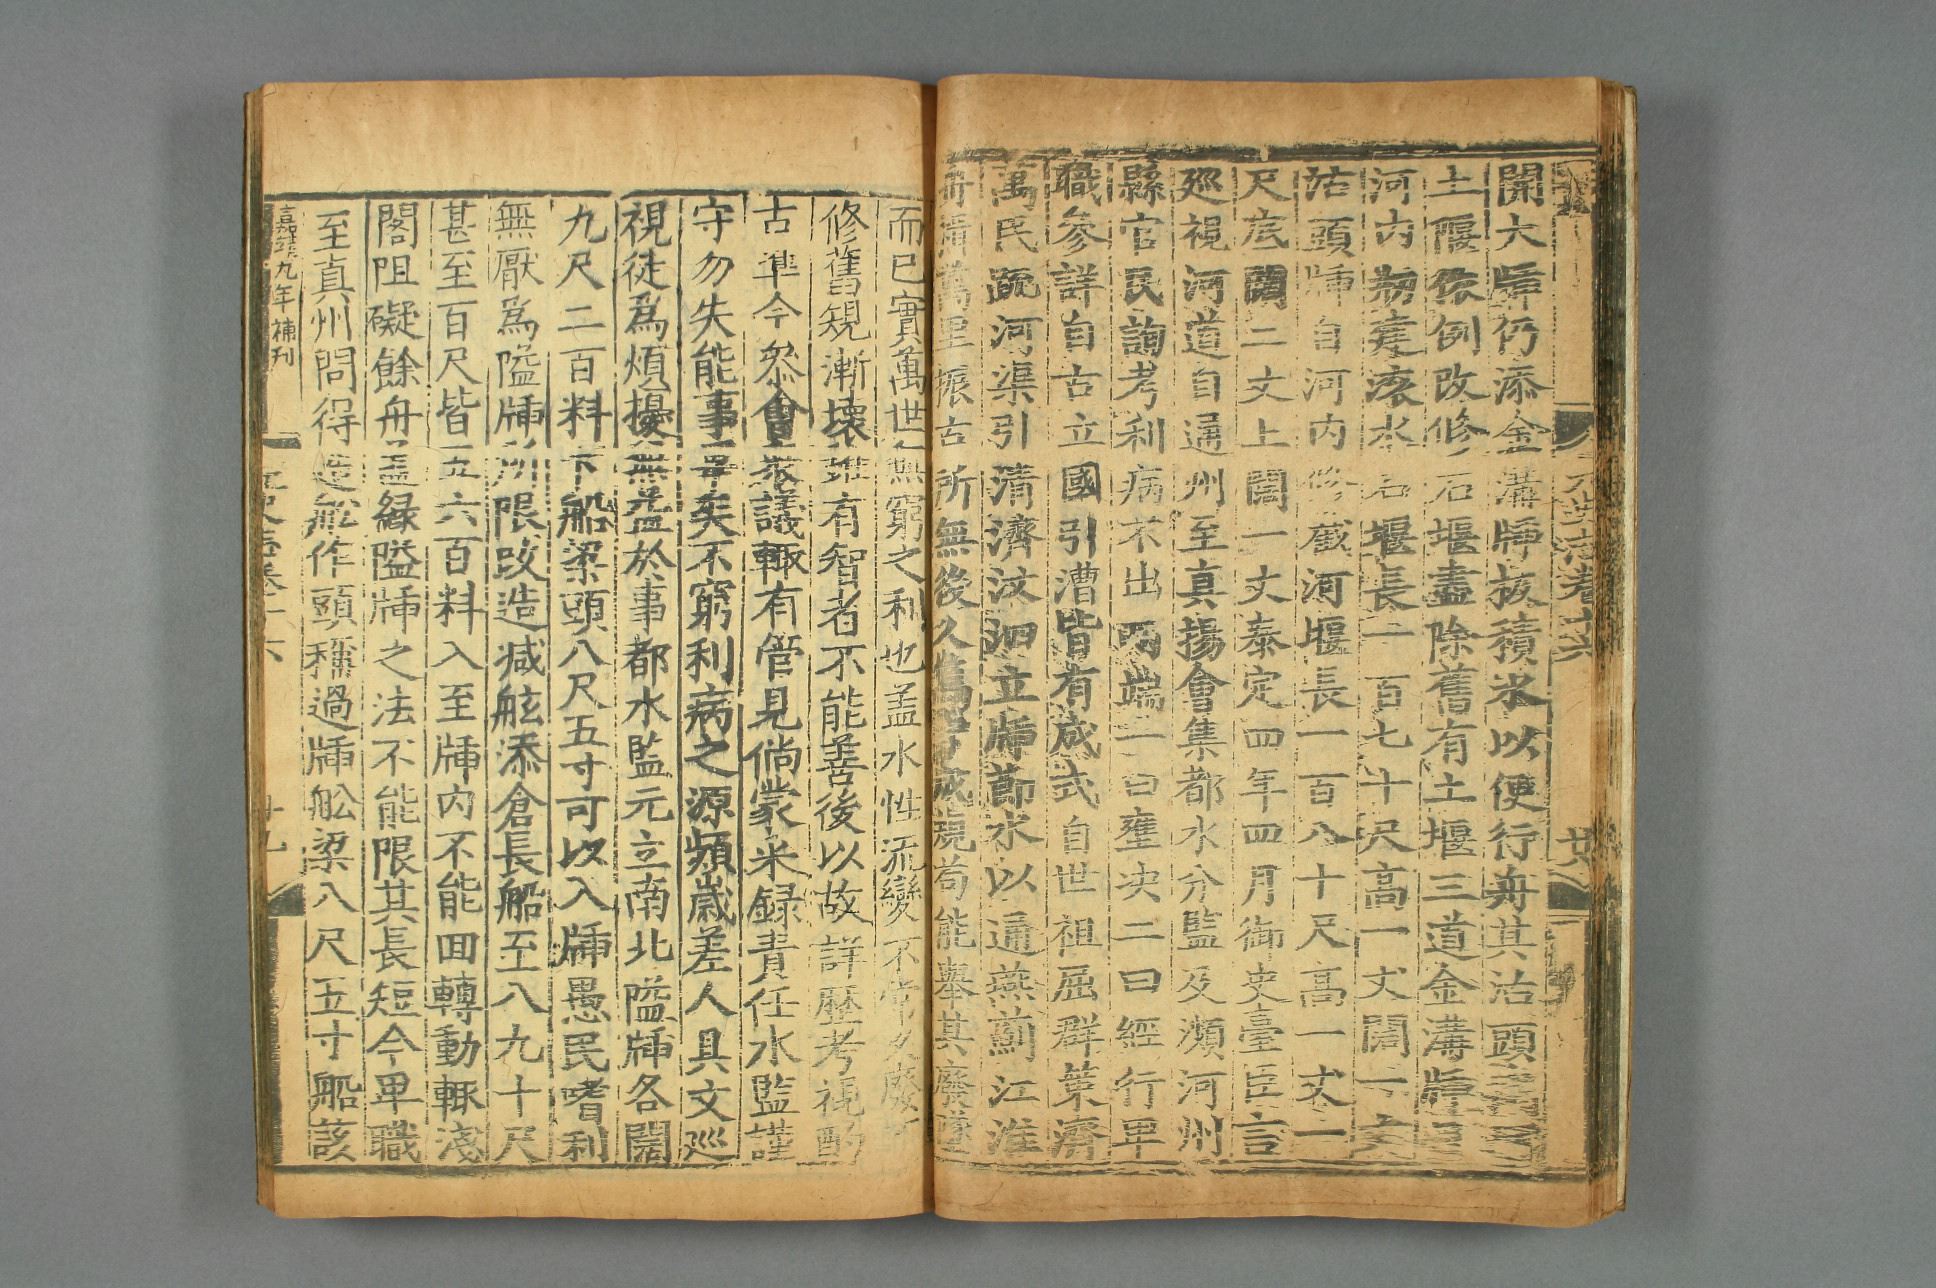 開大牐仍添金溝牐板積水以便行舟其沽頭
土堰依例改修石堰盡除舊有土堰三道金溝牐
河内剏建滚水石堰長一百七十尺高一丈闊一丈
沽頭牐自河内修截河堰長一百八十尺高一丈一
尺底闊二丈上闊一丈泰定四年四月御史臺臣言
廵視河道自通州至真揚會集都水分監及瀕河州
縣官民詢考利病不出兩端一曰壅决二曰經行卑
職參詳自古立國引漕皆有成式自世祖屈群策濟
萬民疏河渠引清濟汶泗立牐節水以通燕薊江淮
舟楫萬里振古所無後人篤守成規苟能舉其廢墜
元史志卷十六
廿八
而已實萬世無窮之利也盖水性流變不常久廢不
修舊規漸壞雖有智者不能善後以故詳歷考視酌
古準今叅會衆議輙有管見倘蒙采録責任水監謹
守勿失能事畢矣不窮利病之源頻歲差人具文廵
視徒爲煩擾無益於事都水監元立南北隘牐各闊
九尺二百料下船梁頭八尺五寸可以入牐愚民嗜利
無厭爲隘牐所限改造减舷添倉長船至八九十尺
甚至百尺皆五六百料入至牐内不能回轉動輙淺
閣阻礙餘舟盖縁隘牐之法不能限其長短今卑職
至真州問得造舩作頭稱過牐舩梁八尺五寸船該
嘉靖九年補刊
元史志卷十六
廿九